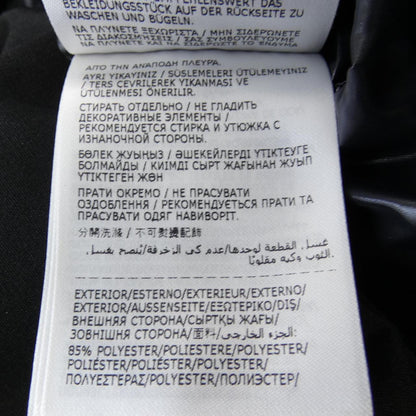 BEKLEIDUNGSSTÜCK AUF DER RÜCKSEITE ZU
WASCHEN UND BÜGELN.
ΝΑ ΠΛΥΝΕΤΕ ΞΕΧΩΡΙΣΤΑ / ΜΗΝ ΣΙΔΕΡΩΝΕΤΕ
ΤΙΣ ΔΙΑΚΟΣΜΗΣΕΙΣ / ΣΑΣ ΣΥΜΒΟΥΛΕΥΟΥΜΕ
ΝΑ ΠΛΥΝΕΤΕ ΚΑΙ ΝΑ ΣΙΔΕΡΩΣΕΤΕ ΤΟ ΕΝΔΥΜΑ
ΑΠΟ ΤΗΝ ΑΝΑΠΟΔΗ ΠΛΕΥΡΑ.
AYRI YIKAYINIZ / SÜSLEMELERI ÜTÜLEMEYINIZ
/ TERS CEVRILEREK YIKANMASI VE
ÜTÜLENMESI ÖNERILIR.
СТИРАТЬ ОТДЕЛЬНО / НЕ ГЛАДИТЬ
ДЕКОРАТИВНЫЕ ЭЛЕМЕНТЫ /
РЕКОМЕНДУЕТСЯ СТИРКА И УТЮЖКА С
ИЗНАНОЧНОЙ СТОРОНЫ.
БӨЛЕК ЖУЫҢЫЗ / ӘШЕКЕЙЛЕРДІ ҮТІКТЕУГЕ
БОЛМАЙДЫ / КИІМДІ СЫРТ ЖАҒЫНАН ЖУЫП
ҮТІКТЕГЕН ЖӨН
ПРАТИ ОКРЕМО / НЕ ПРАСУВАТИ
ОЗДОБЛЕННЯ / РЕКОМЕНДУЄТЬСЯ ПРАТИ ТА
ПРАСУВАТИ ОДЯГ НАВИВОРІТ.
分開洗滌 / 不可熨燙配飾
غسل القطعة لوحدها/عدم كي الزخرفة/يُنصح بغسل
الثوب وكيه مقلوبًا.
EXTERIOR/ESTERNO/EXTERIEUR/EXTERNO/
EXTERIOR/AUSSENSEITE/ΕΞΩΤΕΡΙΚΟ/DIŞ/
ВНЕШНЯЯ СТОРОНА/СЫРТҚЫ ЖАҒЫ/
ЗОВНІШНЯ СТОРОНА/面料/الجزء الخارجي:
85% POLYESTER/POLIESTERE/POLYESTER/
POLIÉSTER/POLIÉSTER/POLYESTER/
ΠΟΛΥΕΣΤΕΡΑΣ/POLYESTER/ПОЛИЭСТЕР/